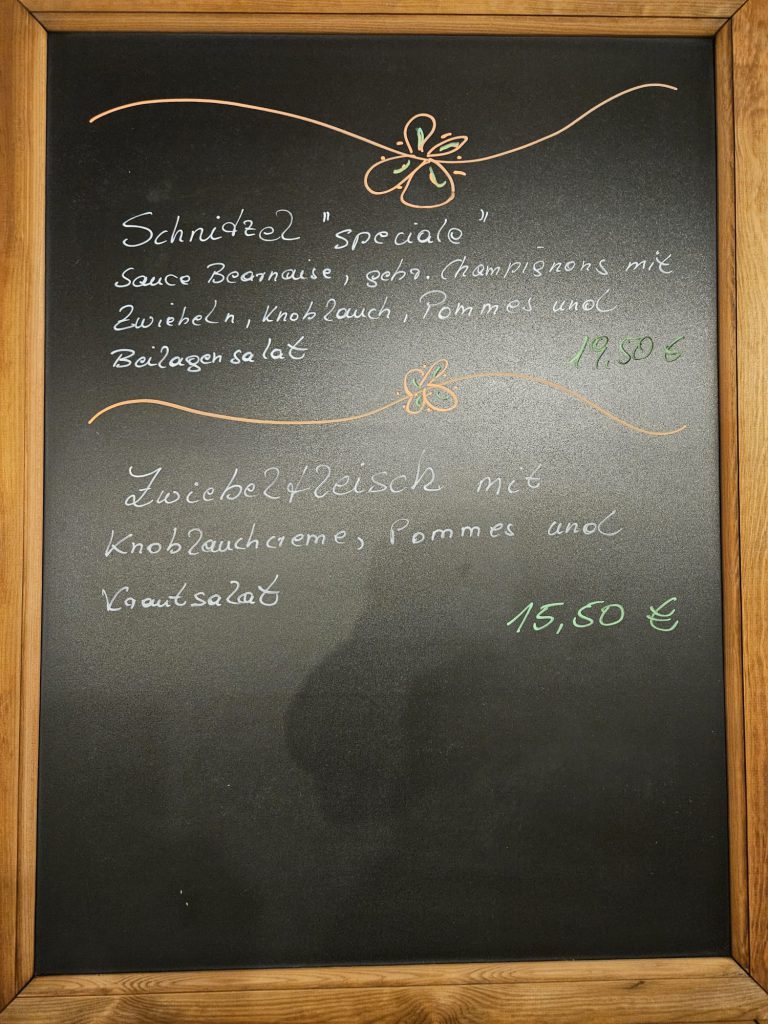 Schnitzel "speciale"
Sauce Bearnaise, gebr. Champignons mit
Zwiebeln, Knoblauch, Pommes und
Beilagensalat
19,50 €
Zwiebelfleisch mit
Knoblauchcreme, Pommes und
Krautsalat
15,50 €